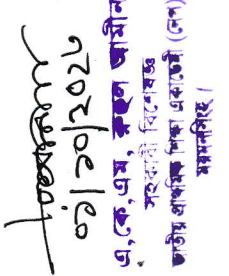 ০১/১০/২০২৩
এ,কে,এম, রুহুল আমীন
সহকারী বিশেষজ্ঞ
জাতীয় প্রাথমিক শিক্ষা একাডেমী (নেপ)
ময়মনসিংহ।